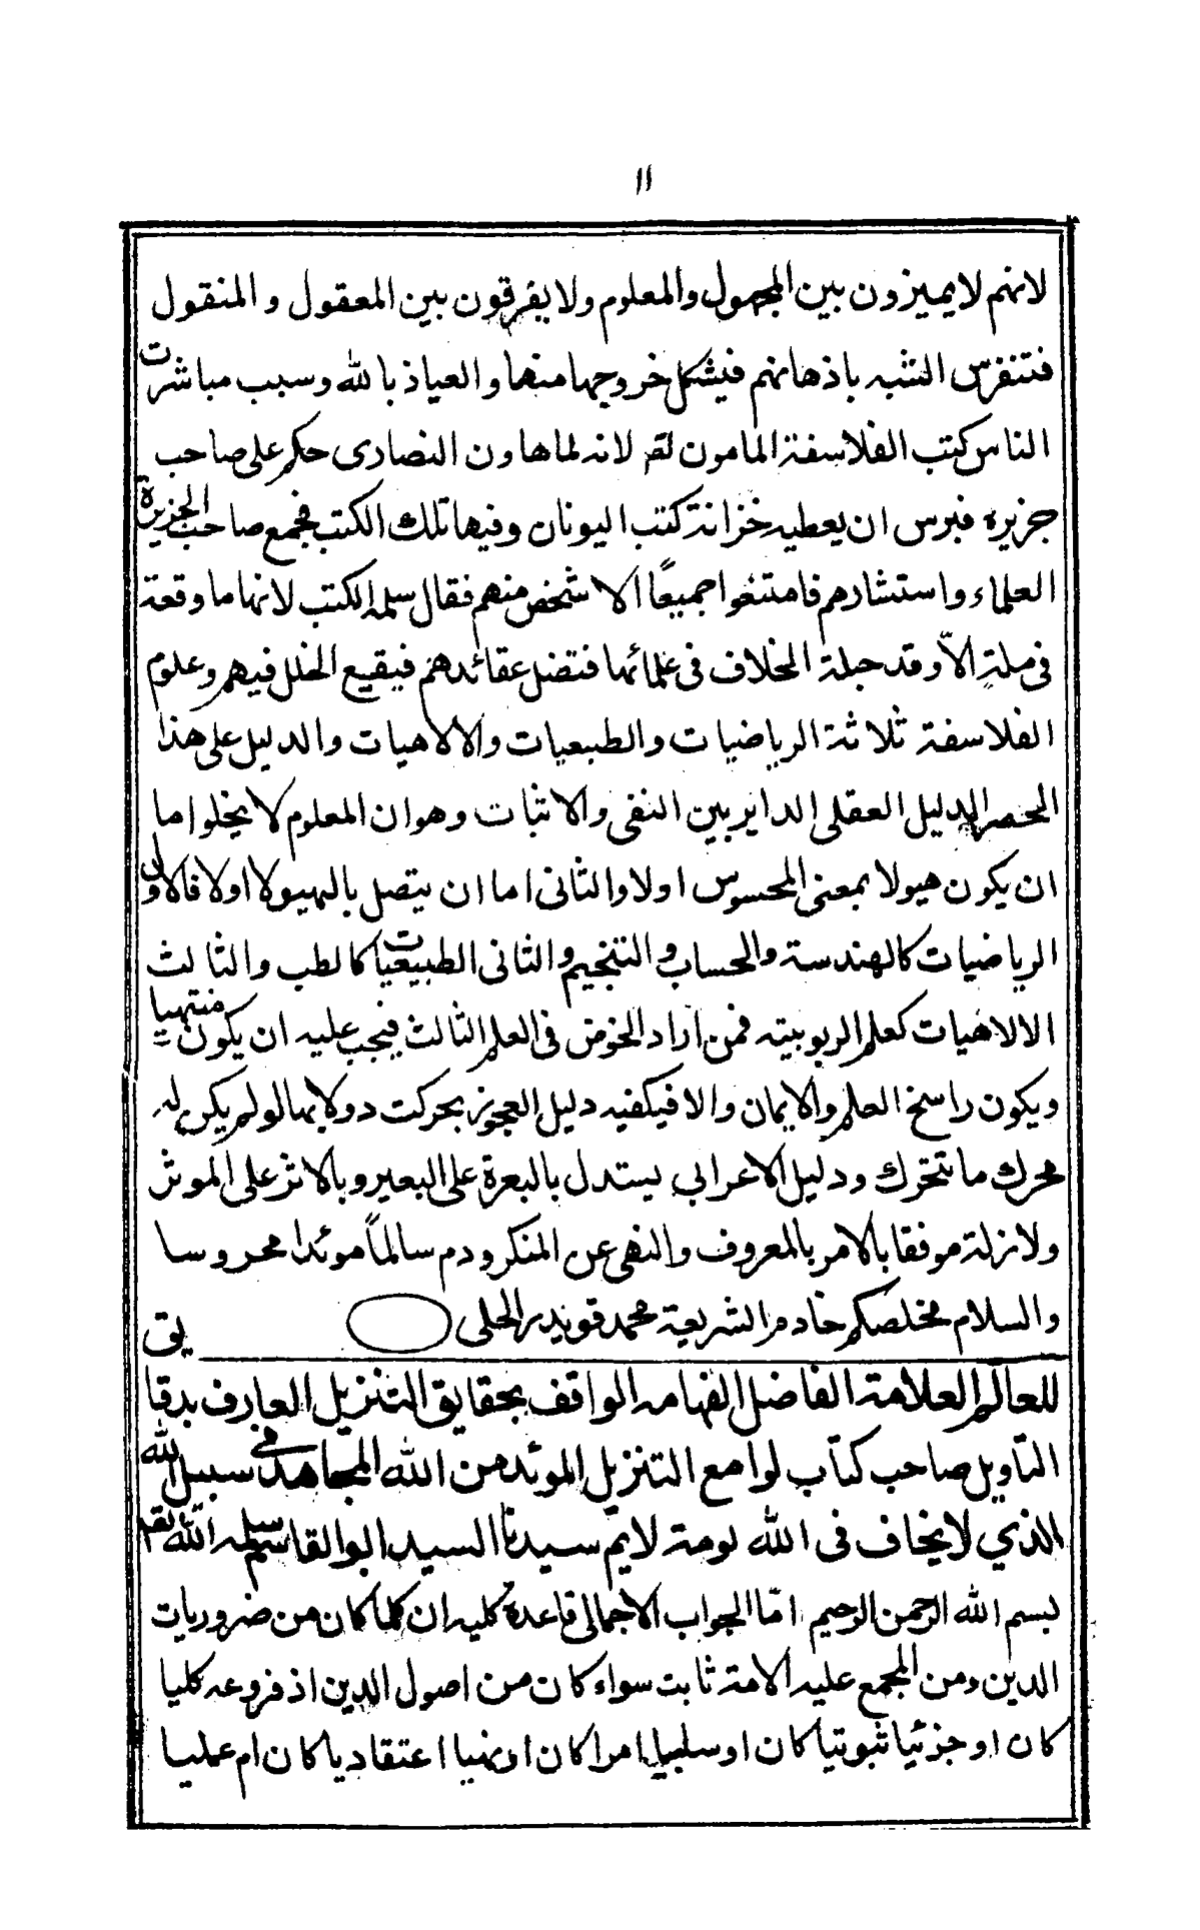 ١١
لانهم لا يميزون بين المجهول والمعلوم ولا يفرقون بين المعقول والمنقول
فتنغرس الشبه باذهانهم فيشكل خروجها منها والعياذ بالله وسبب مباشرت
الناس كتب الفلاسفة المامون لانه لما هاون النصارى حكم على صاحب
جزيره قبرس ان يعطيه خزانة كتب اليونان وفيها تلك الكتب فجمع صاحب الجزيرة
العلماء واستشارهم فامتنعوا جميعًا الا شخص منهم فقال سلمه الكتب لانها ما وقعة
فى ملةٍ الاّ وقد حبلة الخلاف فى علمائها فتضل عقائدهم فيقيع الخلل فيهم وعلوم
الفلاسفة ثلاثة الرياضيات والطبيعيات والالاهيات والدليل على هذا
الحصر الدليل العقلى الداير بين النفى والاثبات وهو ان المعلوم لا يخلوا ما
ان يكون هيولا بمعنى المحسوس اولا والثانى اما ان يتصل بالهيولا اولا فالاول
الرياضيات كالهندسة والحساب والتنجيم والثانى الطبيعيات كالطب والثالث
الالاهيات كعلم الربوبيته فمن اراد الخوض فى العلم الثالث فيجب عليه ان يكون منتهيا
ويكون راسخ العلم والايمان والا فيكفيه دليل العجوز بحركت دولابها لو لم يكن له
محرك ما تتحرك ودليل الاعرابي يستدل بالبعرة على البعير وبالاثر على الموثر
ولا نزلة موفقا بالامر بالمعروف والنهى عن المنكر ودم سالماً موئدا محروسا
والسلام مخلصكم خادم الشريعة محمد قويدر الحلى
للعالم العلامة الفاضل الفهامه الواقف بحقايق التنزيل العارف بدقايق
التأويل صاحب كتاب لوامع التنزيل الموئد من الله المجاهد فى سبيل الله
الذي لا يخاف فى الله لومة لايم سيدنا السيد ابو القاسم سلمه الله تعم
بسم الله الرحمن الرحيم امّا الجواب الاجمالى قاعدة كليه ان كلما كان من ضروريات
الدين ومن المجمع عليه الامة ثابت سواء كان من اصول الدين اذ فروعه كليا
كان او جزئيا ثبوتيا كان او سلبيا امرا كان او نهيا اعتقاديا كان ام عمليا